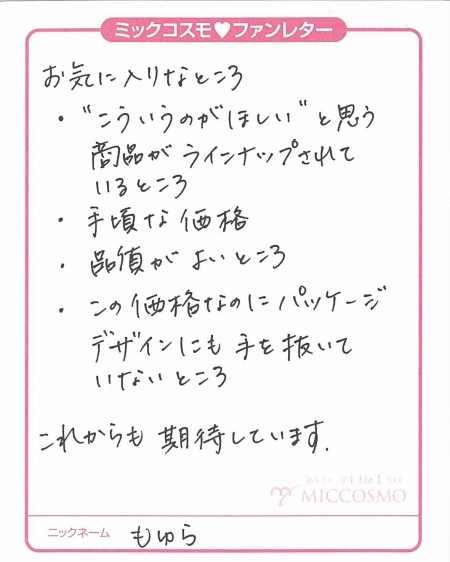 ミックコスモ♥ファンレター
お気に入りなところ
・"こういうのがほしい"と思う
商品がラインナップされて
いるところ
・手頃な価格
・品質がよいところ
・この価格なのにパッケージ
デザインにも手を抜いて
いないところ
これからも期待しています.
No1
MICCOSMO
ニックネーム もゆら